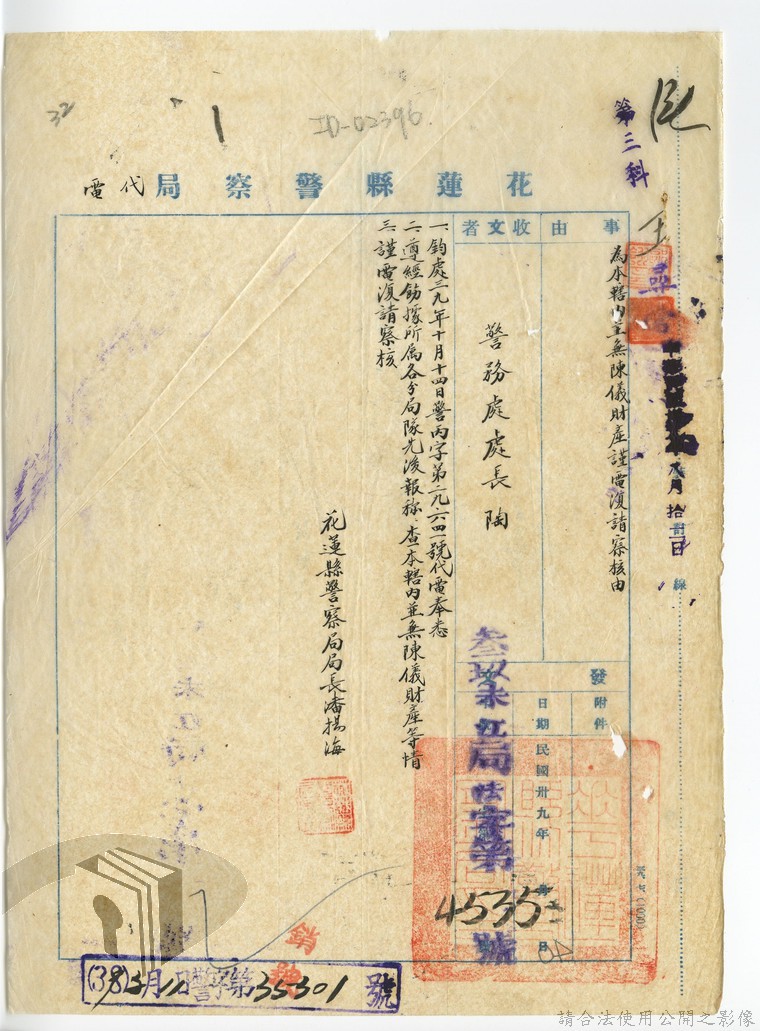 32
ID-02396
第三科
花蓮縣警察局代電
事由
為本轄内並無陳儀財產謹電復請察核由
收文者
警務處處長陶
發文
附件
日期
民國卅九年 月 日
局 字第4535號
一、鈞處三九年十月十四日警丙字第二九六四一號代電奉悉
二、遵經飭據所屬各分局隊先後報称、查本轄内並無陳儀財產等情
三、謹電復請察核
花蓮縣警察局局長潘揚海
線
月拾 日
銷號
35301號
請合法使用公開之影像